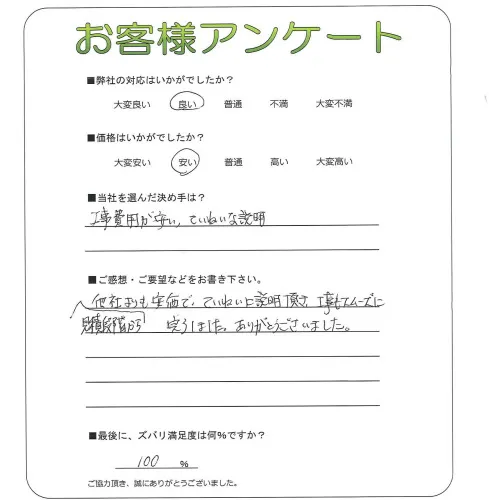 お客様アンケート
■弊社の対応はいかがでしたか？
大変良い 良い 普通 不満 大変不満
■価格はいかがでしたか？
大変安い 安い 普通 高い 大変高い
■当社を選んだ決め手は？
工事費用が安い, ていねいな説明
■ご感想・ご要望などをお書き下さい。
他社よりも安価で、ていねいに説明頂き、工事もスムーズに
見積段階から 完了しました。ありがとうございました。
■最後に、ズバリ満足度は何％ですか？
100 %
ご協力頂き、誠にありがとうございました。